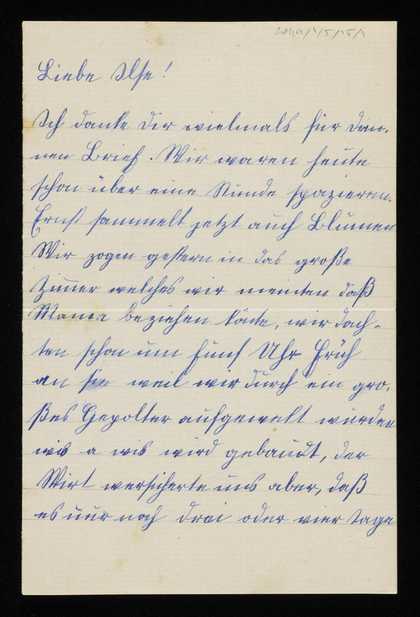 Liebe Ilse!
Ich danke dir vielmals für dan-
nen Brief. Wir waren heute
schon über eine Stunde spazieren.
Ernst sammelt jetzt auch Blumen
Wir zogen gestern in das große
Zimer welches wir meinten daß
Mama beziehen könte, wir dach-
ten schon um fünf Uhr früh
an weil wir durch ein gro-
ßes Gepolter aufgewekt wurden
wird gebaudt, der
Wirt versicherte uns aber, daß
es nur noch drai oder vier tage